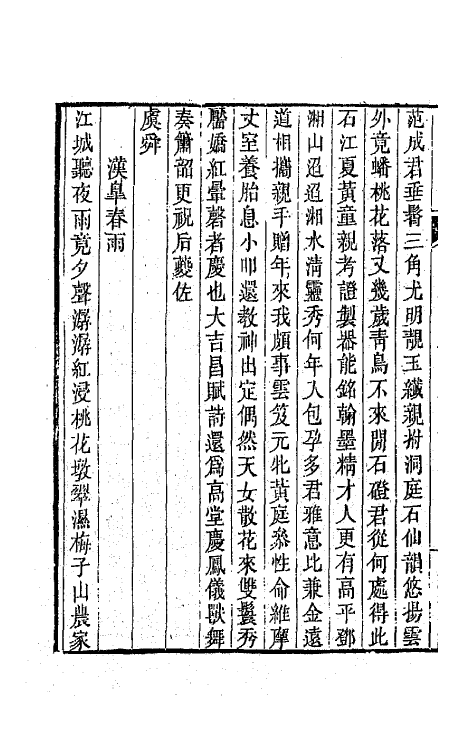 范成君垂鬌三角尤明靚玉纖親拊洞庭石仙韻悠揚雲
外竟蟠桃花落又幾歲靑鳥不來閒石磴君從何處得此
石江夏黃童親考證製器能銘翰墨精才人更有高平鄧
湘山迢迢湘水淸靈秀何年人包孕多君雅意比兼金遠
道相攜親手贈年來我頗事雲笈元牝黃庭叅性命維摩
丈室養胎息小叩還敎神出定偶然天女散花來雙鬟秀
靨嬌紅暈磬者慶也大吉昌賦詩還爲高堂慶鳳儀獸舞
奏簫韶更祝后夔佐
虞舜
漢皐春雨
江城聽夜雨竟夕聲潺潺紅浸桃花墩翠濕梅子山農家